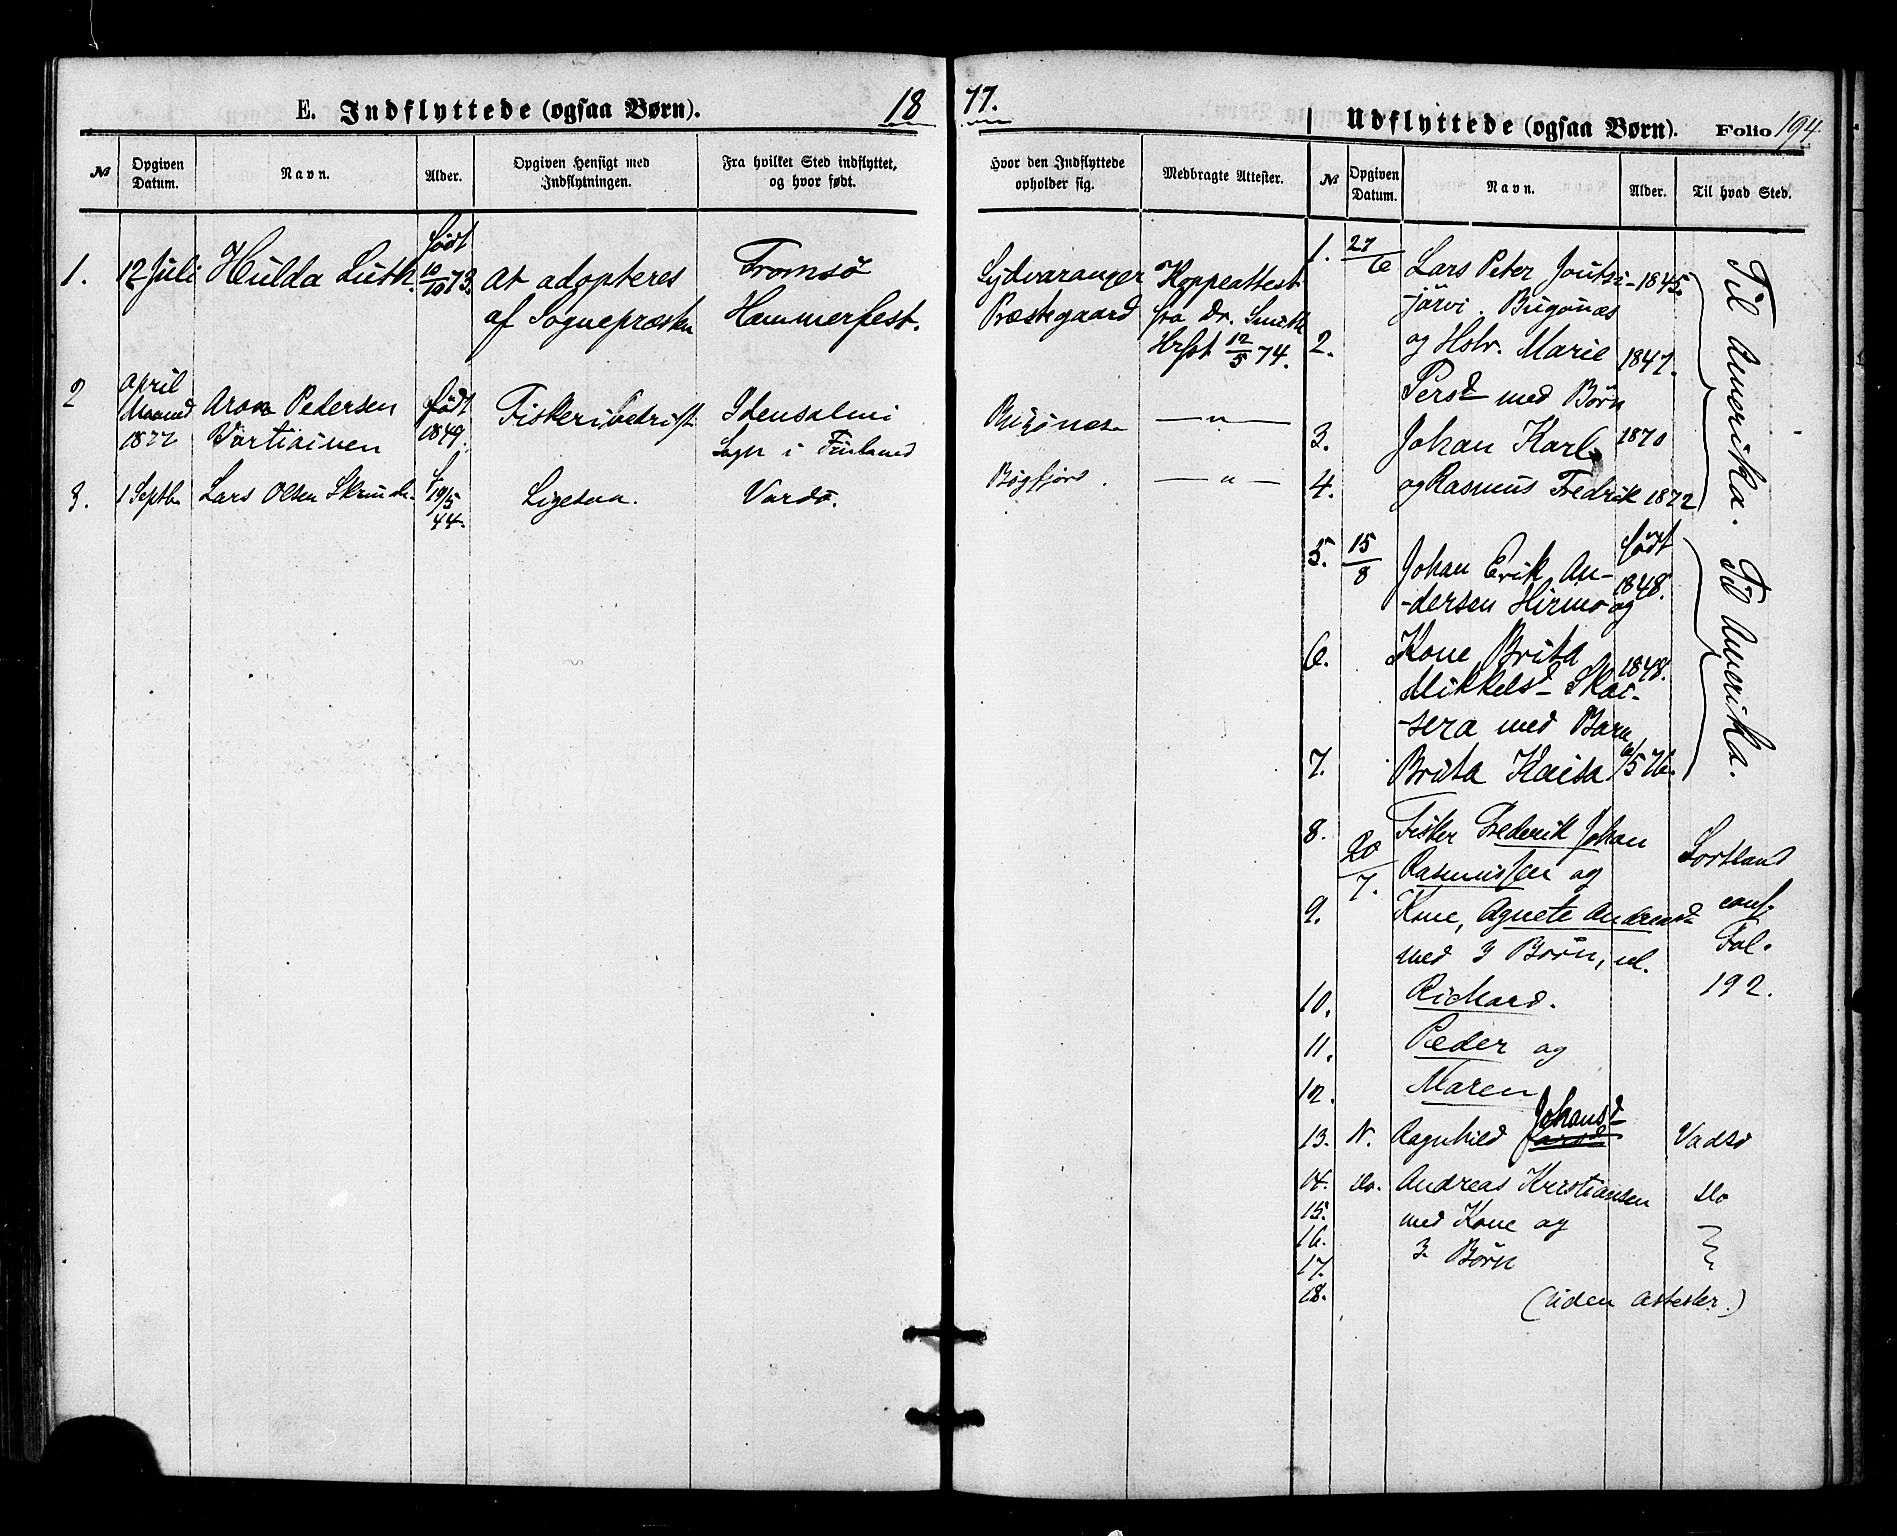 E. Indflyttede (ogsaa Børn). 18
№ Opgiven Datum. Navn. Alder. Opgiven Hensigt med Indflytningen. Fra hvilket Sted indflyttet, og hvor født.
1. 12 Juli Hulda Luth. født 10/10 73. at adopteres Tromsø
af Sognepræsten Hammerfest.
2 April Maaned 1877 Aron Pedersen født 1849. Fiskeribedrift Idensalmi
Vartiainen Sogn i Finland
3. 1 Septbr Lars Olsen f 19/5 44. Ligesaa. Vardø.
77.
Udflyttede (ogsaa Børn). Folio 194
Hvor den Indflyttede opholder sig. Medbragte Attester. № Opgiven Datum. Navn. Alder. Til hvad Sted.
Sydvaranger Koppeattest
Præstegaard fra Dr. Smith
Hrfst 12/5 74.
Bugønæs — " —
Bøgfjord. — " —
1. 27/6 Lars Peter Joutsi- 1845.
-järvi. Bugønæs
2. og Hstr. Marie 1847.
Persd med Børn
3. Johan Karl 1870
4. og Rasmus Fredrik 1872
Til Amerika.
5. 15/8 Johan Erik An- født 1848.
-dersen Hirmo og
6. Kone Brita 1848.
Mikkelsd Skai-
-sera med Barn
7. Brita Kaisa 6/5 76.
Til Amerika.
8. 20/7. Fisker Frederik Johan Sortland
Rasmussen og
9. Kone, Agnete Andreasd conf.
med 3 Børn, nl. Fol.
10. Richard. 192.
11. Peder og
12. Maren
13. N. Ragnhild Johansd Vadsø
14. do. Andreas Kristiansen do
15. med Kone og
16.
3 Børn
17.
18. (uden Attester.)